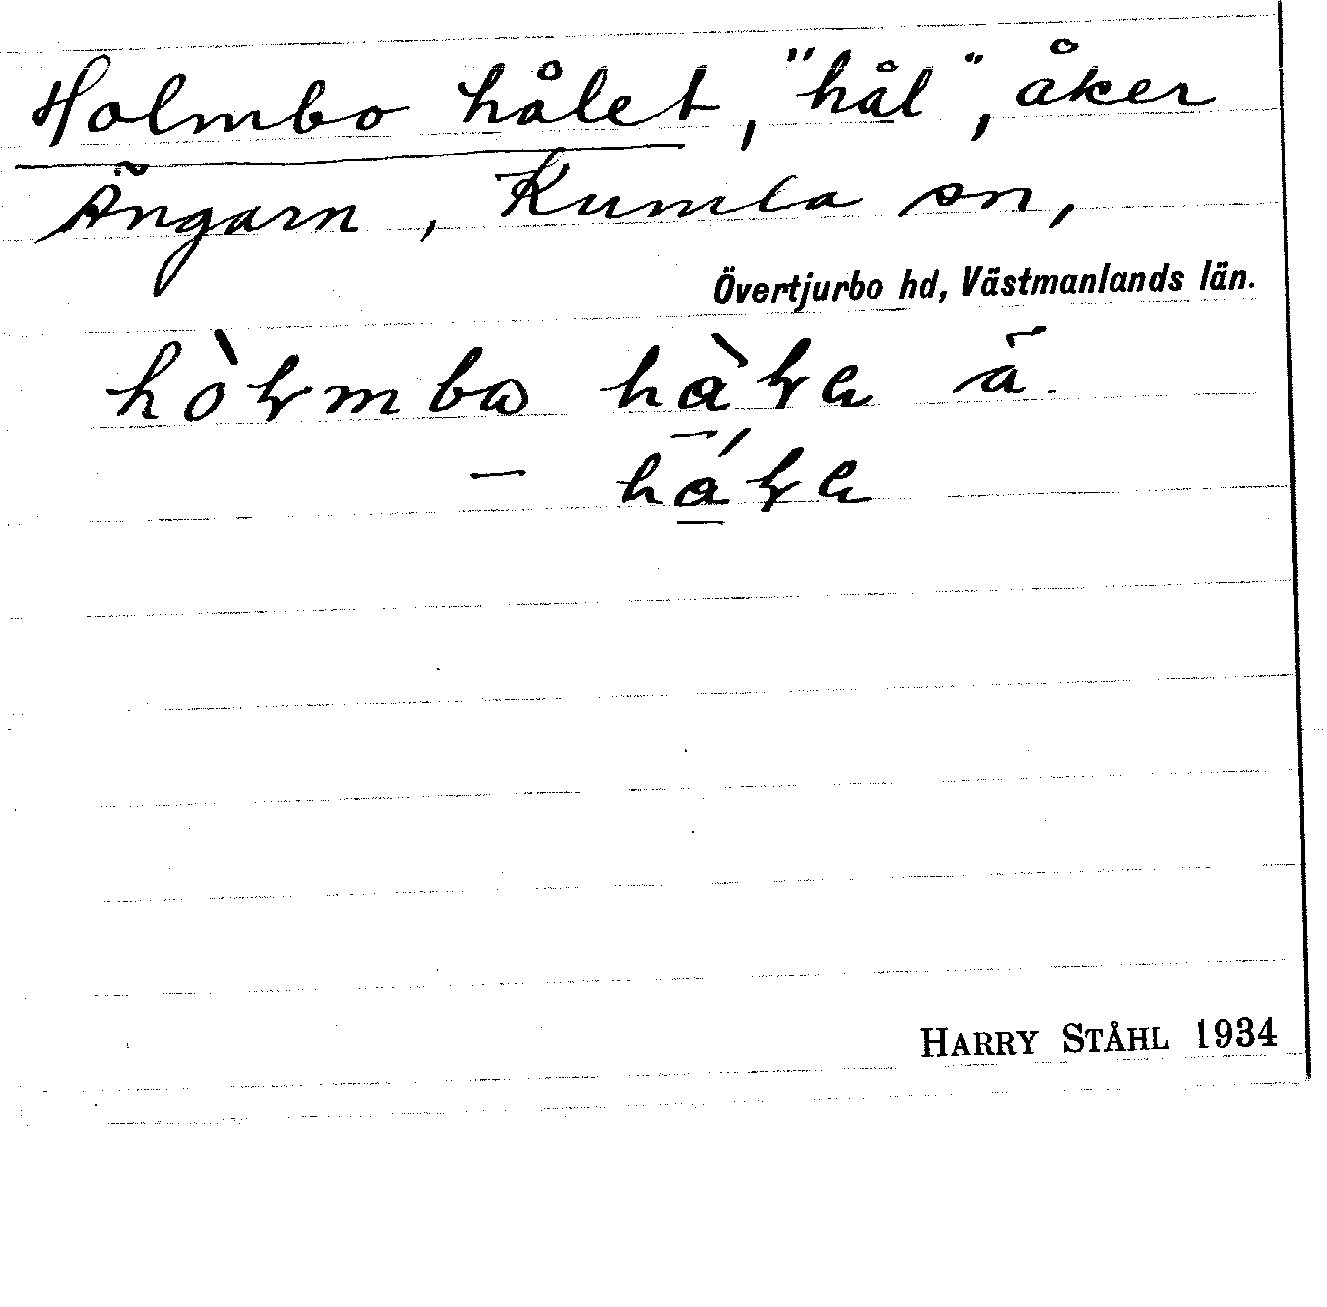 Holmbo hålet, "hål", åker
Ängarn, Kumla sn,
Övertjurbo hd, Västmanlands län.
HARRY STÅHL 1934